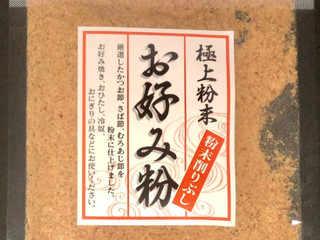 極上粉末
お好み粉
粉末削りぶし
厳選したかつお節、さば節、むろあじ節を
粉末に仕上げました。
お好み焼き、おひたし、冷奴、
おにぎりの具などにお使いください。